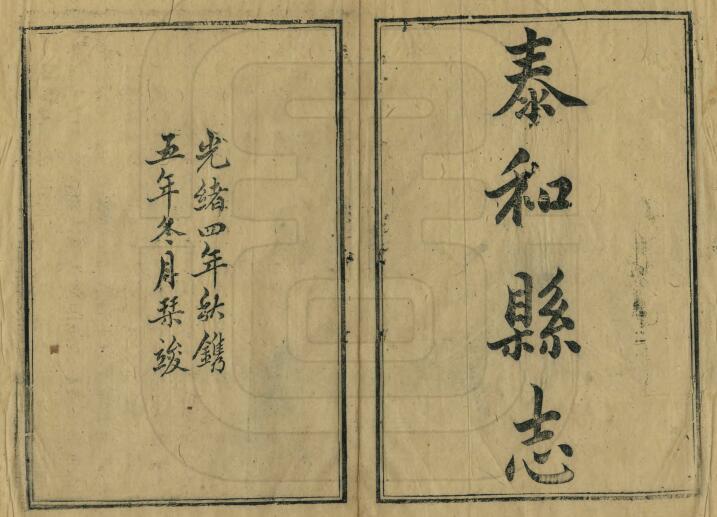 泰和縣志
光緒四年秋鐫
五年冬月栞竣